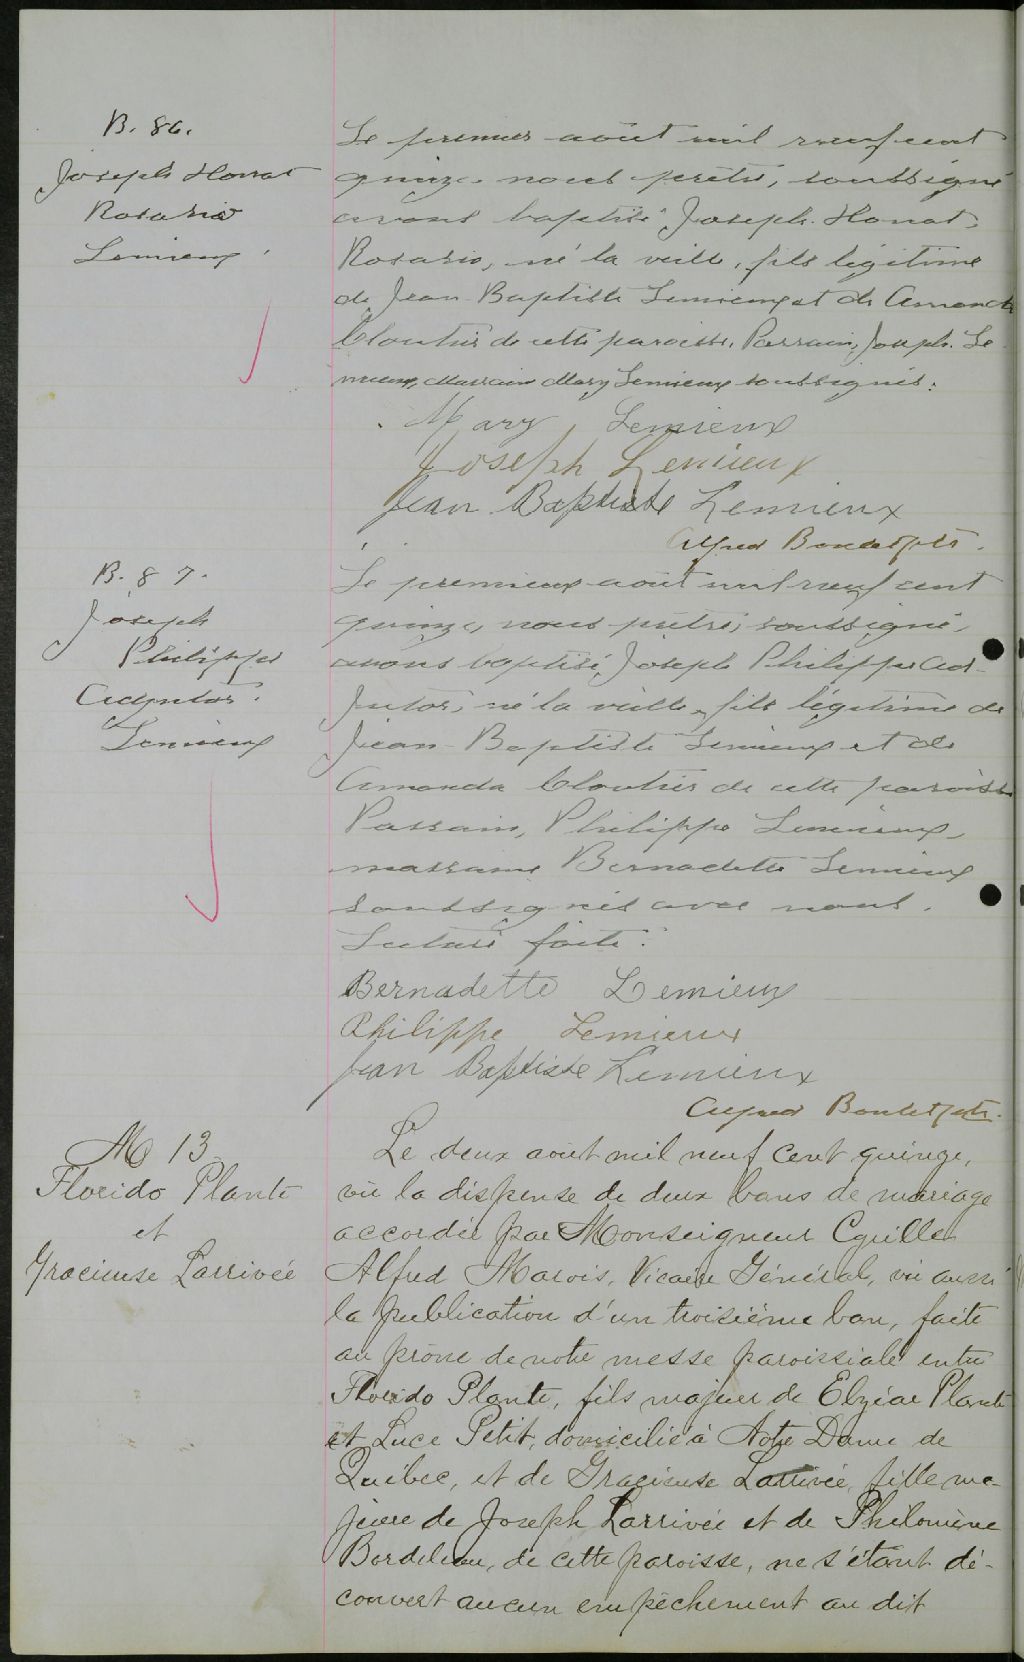 B. 86.
Joseph Honat
Rosario
Lemieux
Le premier août mil neuf cent
quinze nous prêtre, soussigné
avons baptisé Joseph Honat
Rosario, né la veille, fils légitime
de Jean Baptiste Lemieux et de Amanda
Cloutier de cette paroisse. Parrain, Joseph Le
mieux, Marraine Mary Lemieux soussignés.
Mary Lemieux
Joseph Lemieux
Jean Baptiste Lemieux
Alfred Boulet ptr.
B. 87.
Joseph
Philippe
Adjutor
Lemieux
Le premier août mil neuf cent
quinze, nous prêtre, soussigné,
avons baptisé, Joseph Philippe Ad-
jutor, né la veille, fils légitime de
Jean-Baptiste Lemieux et de
Amanda Cloutier de cette paroisse
Parrain, Philippe Lemieux,
marraine Bernadette Lemieux
soussignés avec nous.
Lecture faite.
Bernadette Lemieux
Philippe Lemieux
Jean Baptiste Lemieux
Alfred Boulet ptr.
M 13
Florido Plante
et
Gracieuse Larrivée
Le deux août mil neuf cent quinze,
vu la dispense de deux bans de mariage
accordée par Monseigneur Cyrille
Alfred Marois, Vicaire Général, vu aussi
la publication d'un troisième ban, faite
au prône de notre messe paroissiale entre
Florido Plante, fils majeur de Elzéar Plante
et Luce Petit, domicilié à Notre Dame de
Québec, et de Gracieuse Larrivée, fille ma-
jeure de Joseph Larrivée et de Philomène
Bordeleau, de cette paroisse, ne s'étant dé-
couvert aucun empêchement au dit